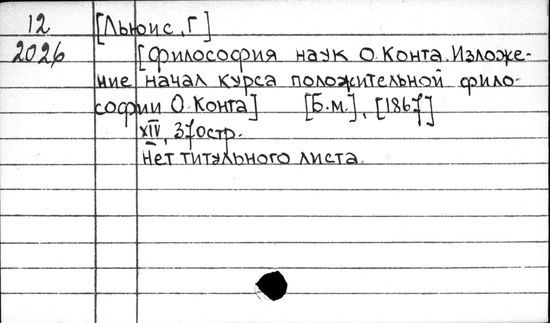 12 [Льюис, Г]
2026 [Философия наук О. Конта. Изложе-
ние начал курса положительной фило-
софии О. Конта] [Б.м.], [1867]
XIV, 370стр.
Нет титульного листа.